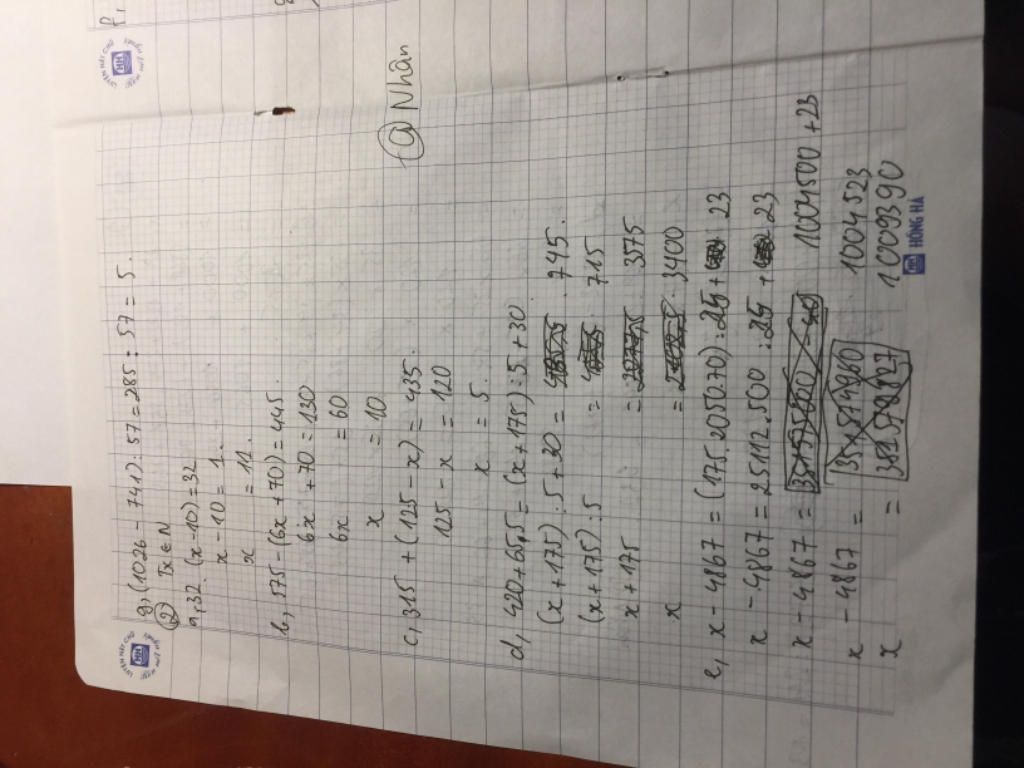 g, (1026 - 741) : 57 = 285 : 57 = 5.
② Tx ∈ N
a, 32. (x - 10) = 32
x - 10 = 1.
x = 11.
b, 575 - (6x + 70) = 445.
6x + 70 = 130
6x = 60
x = 10
c, 315 + (125 - x) = 435.
125 - x = 120
x = 5.
d, 420 + 65.5 = (x + 175) : 5 + 30
(x + 175) : 5 + 30 = 745.
(x + 175) : 5 = 715
x + 175 = 3575
x = 3400
e, x - 4867 = (175.2050.70) : 25 + 23
x - 4867 = 25112.500 : 25 + 23
x - 4867 = 1004500 + 23
x - 4867 = 1004523
x = 1009390
ⓐ Nhân
HH
HỒNG HÀ